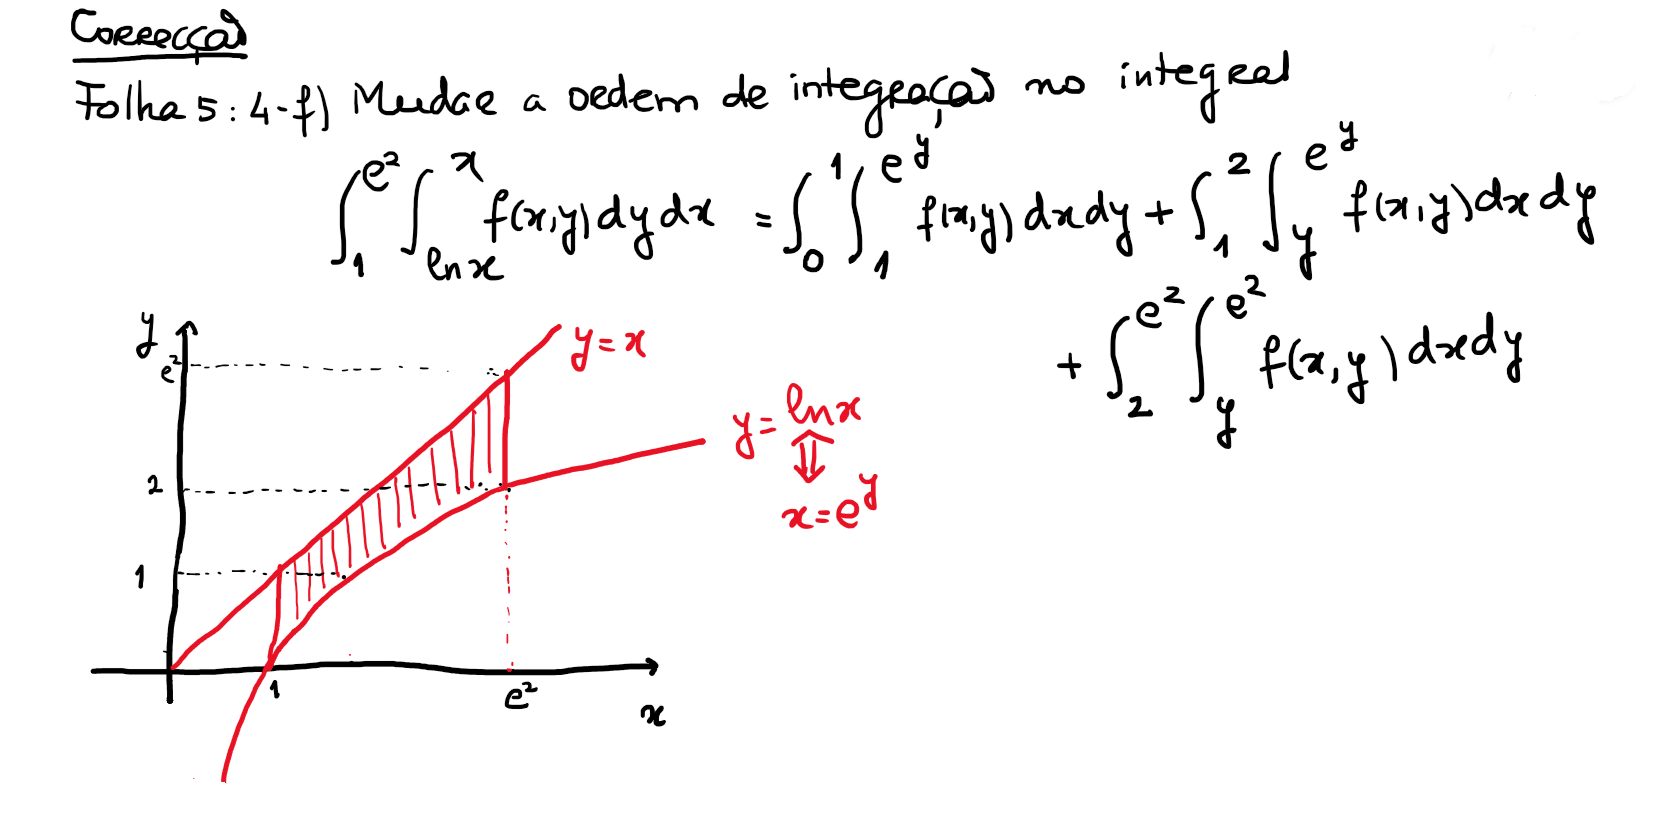 Correcção
Folha 5: 4-f) Mudar a ordem de integração no integral
∫₁^{e²} ∫_{ln x}^{x} f(x,y) dy dx = ∫₀^{1} ∫₁^{e^y} f(x,y) dx dy + ∫₁^{2} ∫_y^{e^y} f(x,y) dx dy
+ ∫₂^{e²} ∫_y^{e²} f(x,y) dx dy
y
y = x
e²
y = ln x
⇕
2
x = e^y
1
1
e²
x